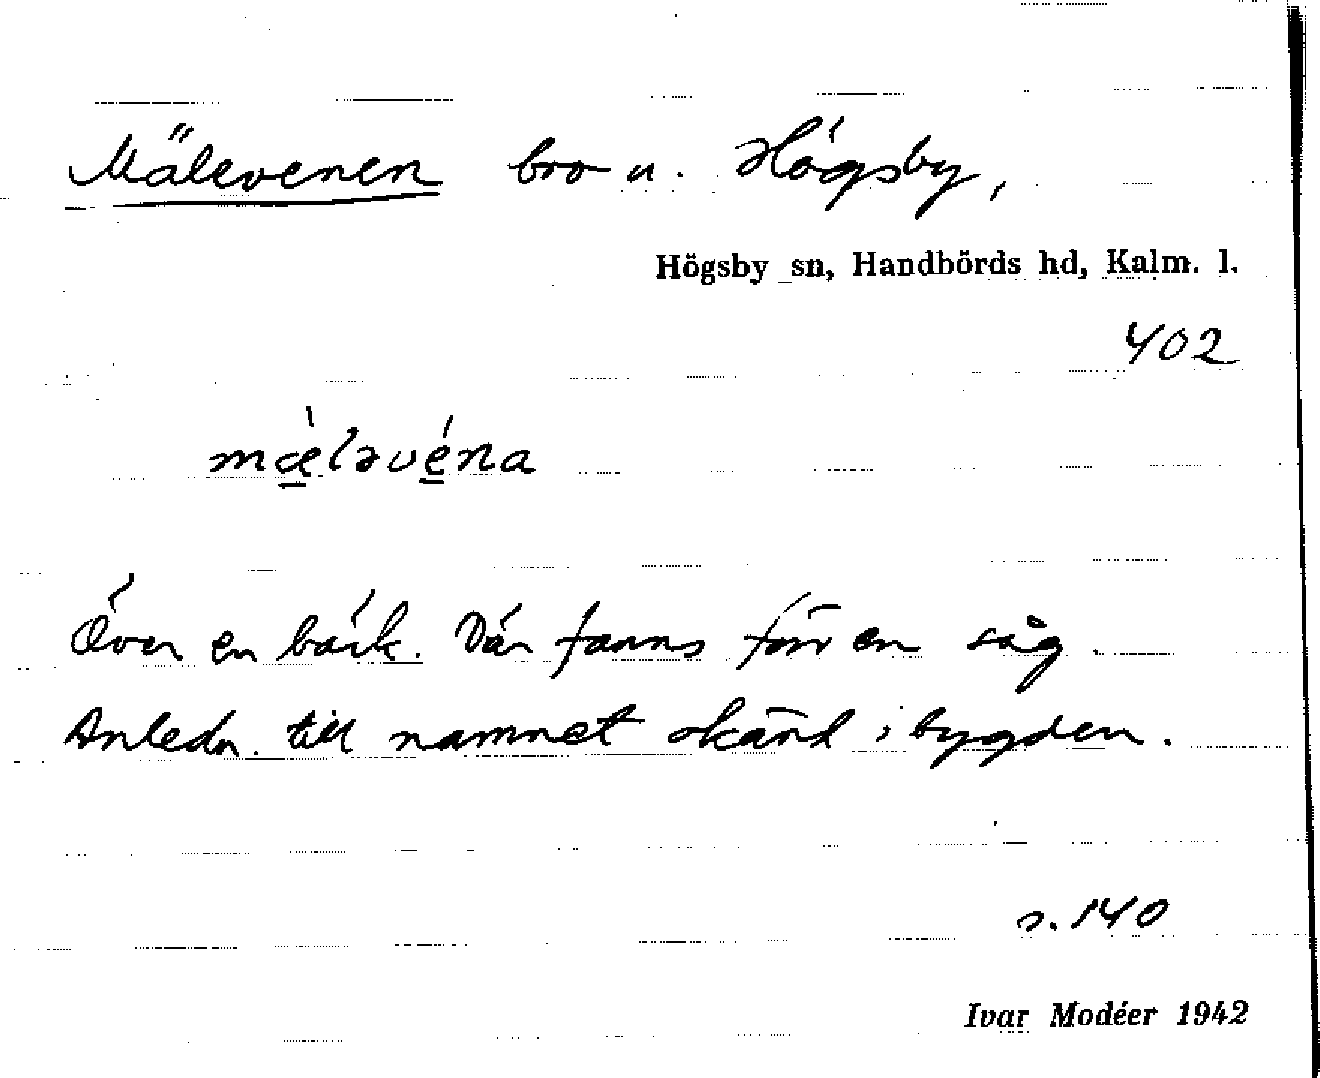 Mälevenen bro u. Högsby,
Högsby sn, Handbörds hd, Kalm. l.
402
mǽ̠ləvé̠na
Över en bäck. Där fanns förr en såg.
Anledn. till namnet okänd i bygden.
s. 140
Ivar Modéer 1942